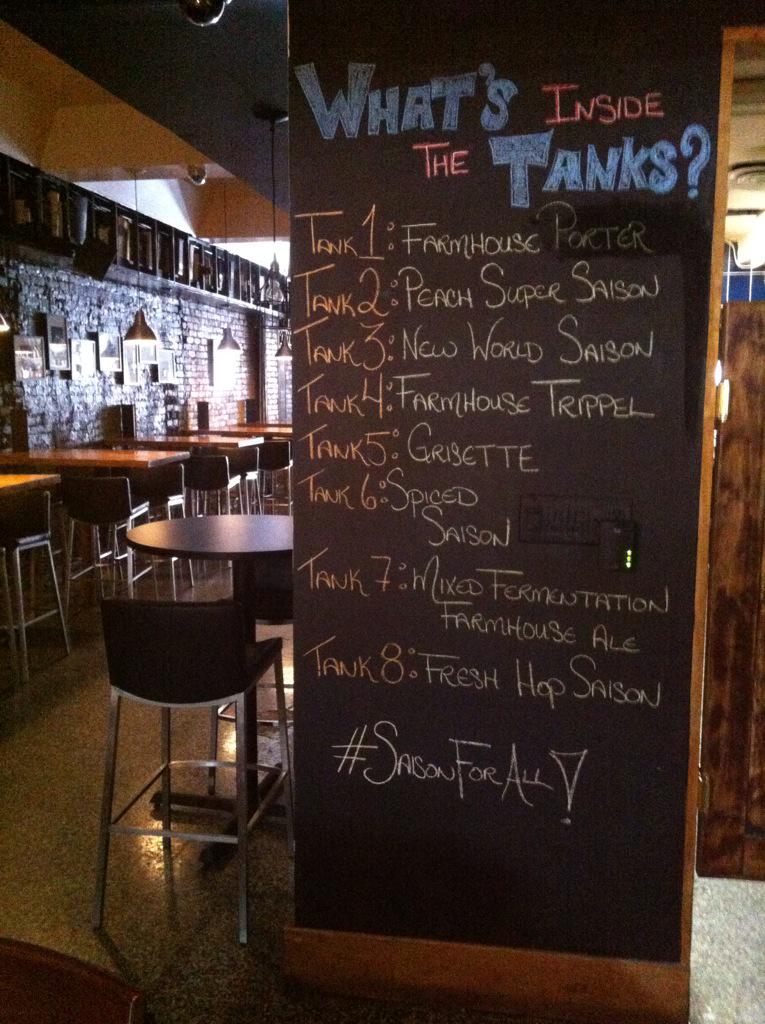 WHAT'S INSIDE
THE TANKS?
TANK 1: FARMHOUSE PORTER
TANK 2: PEACH SUPER SAISON
TANK 3: NEW WORLD SAISON
TANK 4: FARMHOUSE TRIPPEL
TANK 5: GRISETTE
TANK 6: SPICED
SAISON
TANK 7: MIXED FERMENTATION
FARMHOUSE ALE
TANK 8: FRESH HOP SAISON
#SAISONFORALL!